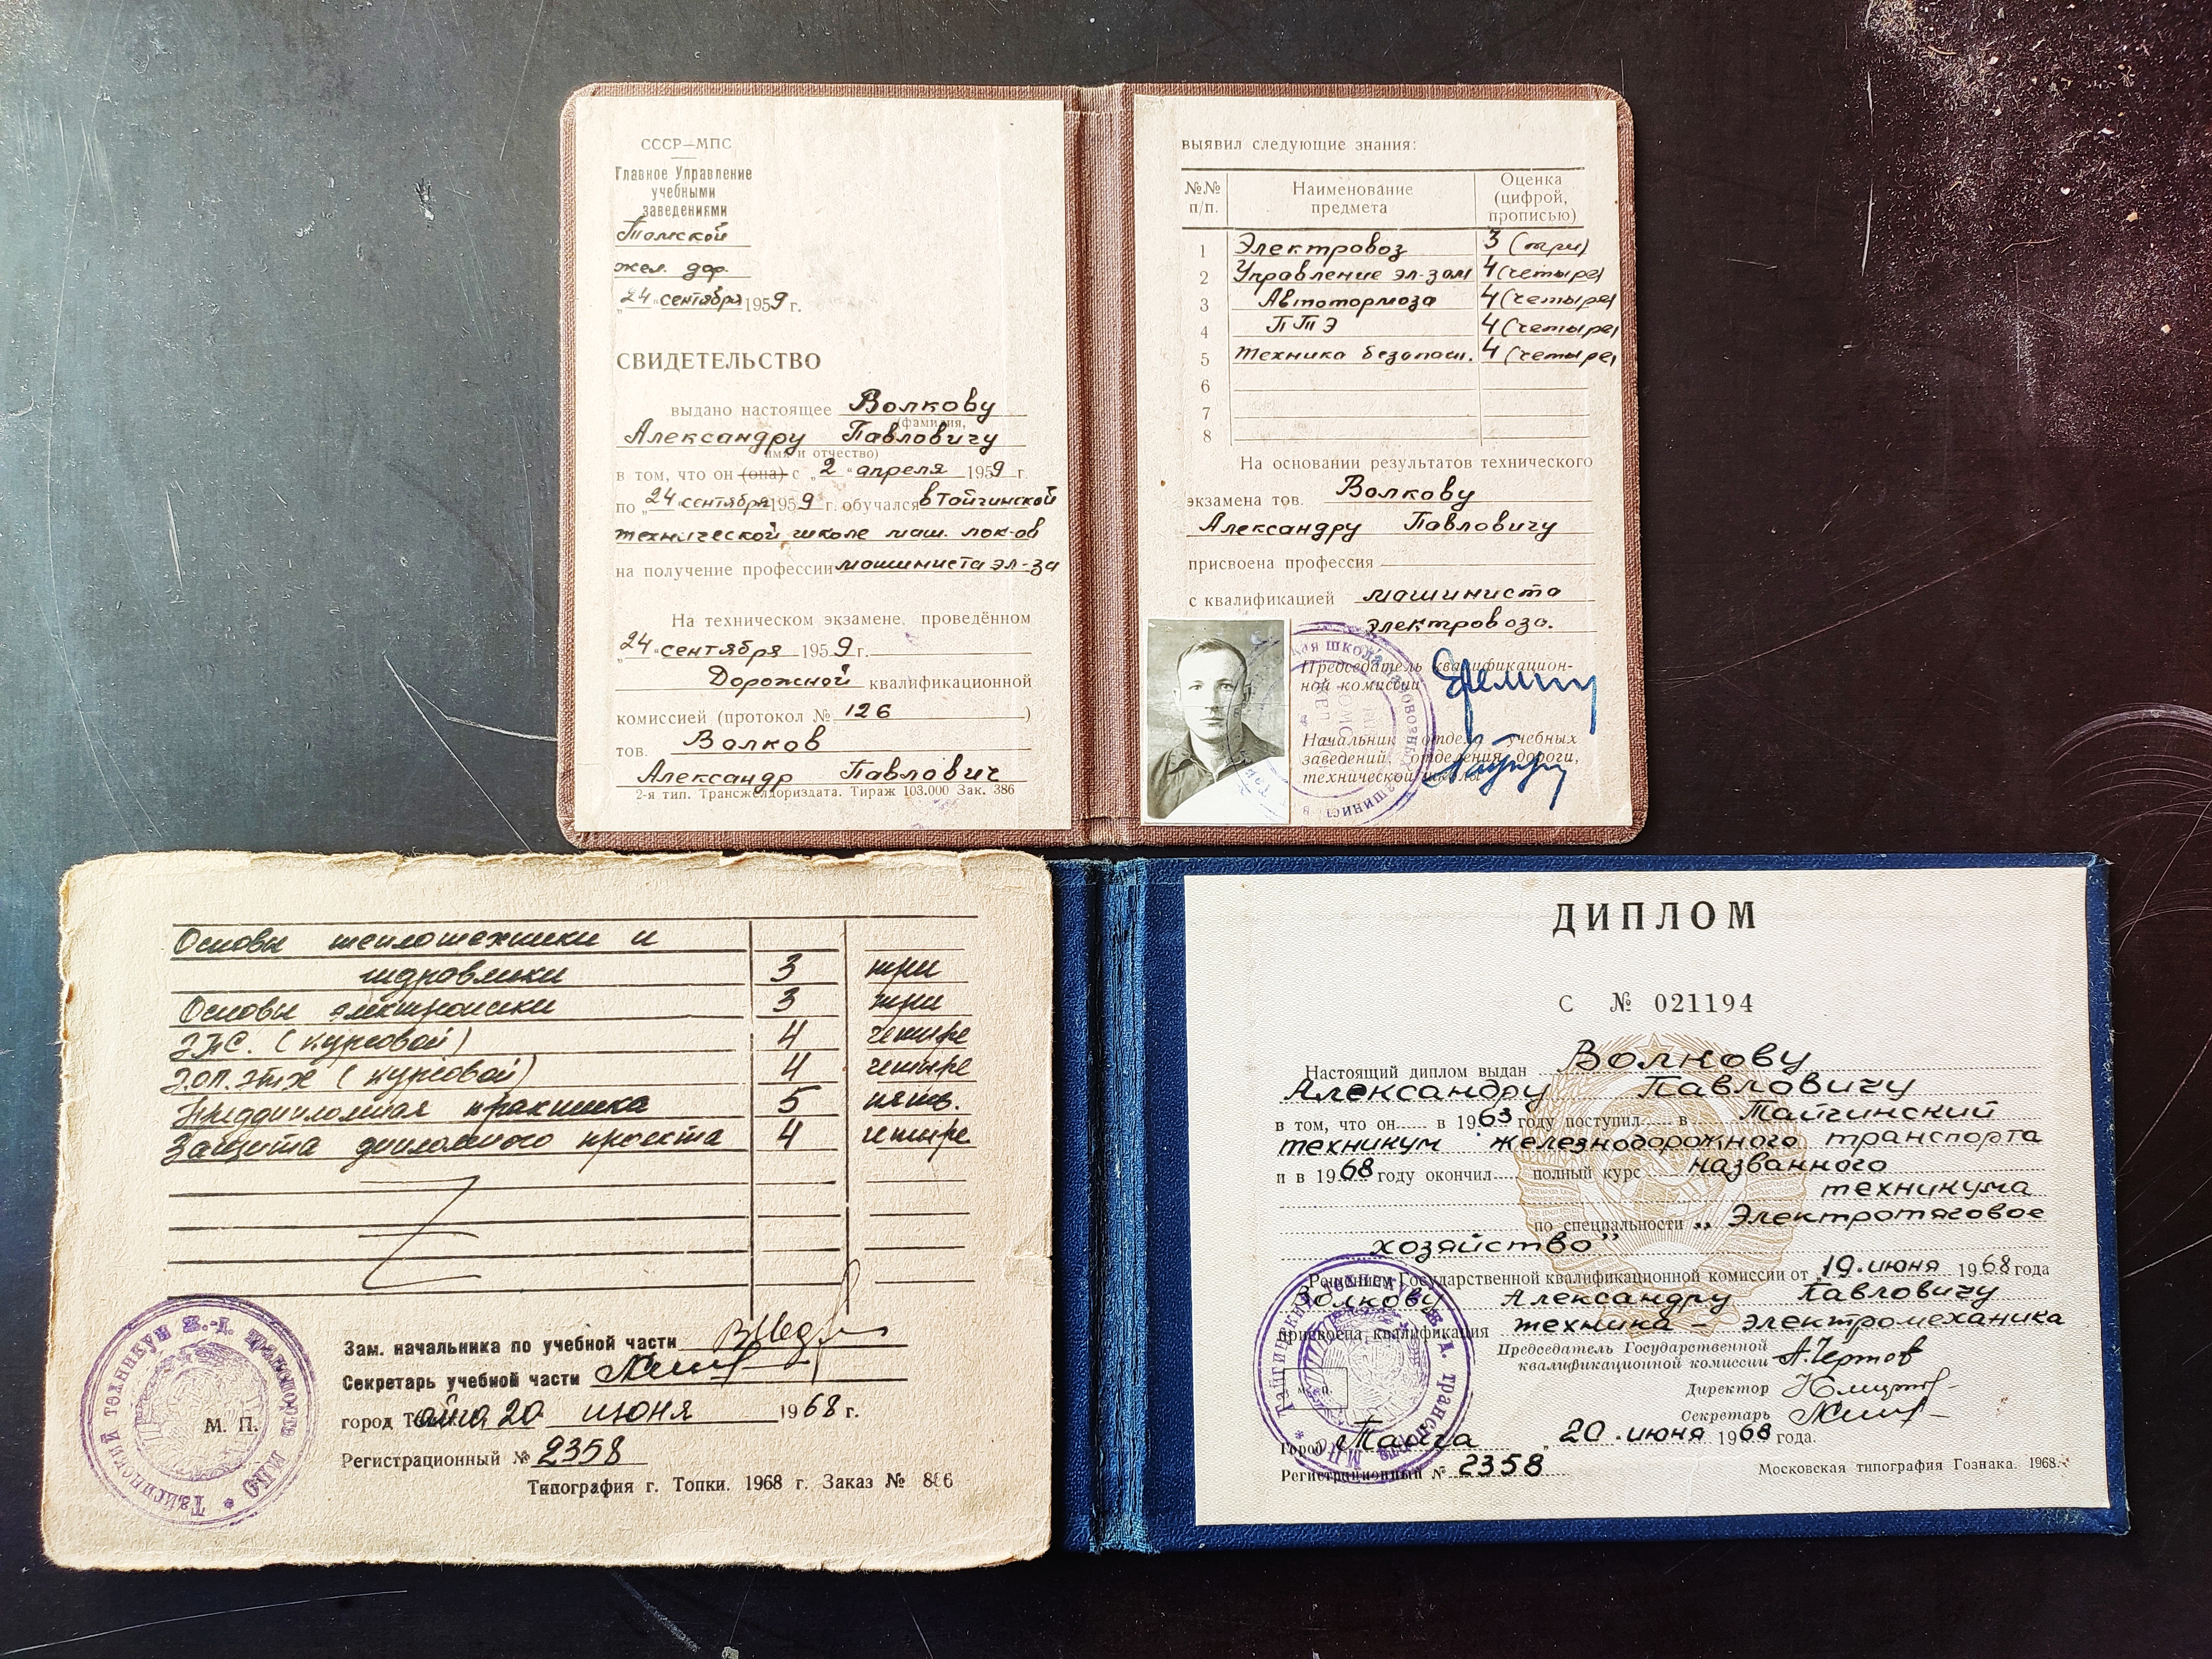 СССР—МПС
Главное Управление
учебными
заведениями
Томской
жел. дор.
„24“ сентября 1959 г.
СВИДЕТЕЛЬСТВО
выдано настоящее Волкову
(фамилия,
Александру Павловичу
имя и отчество)
в том, что он (она) с „2“ апреля 1959 г.
по „24“ сентября 1959 г. обучался в Тайгинской
технической школе маш. лок-ов
на получение профессии машиниста эл-за
На техническом экзамене, проведённом
„24“ сентября 1959 г.
Дорожной квалификационной
комиссией (протокол № 126 )
тов. Волков
Александр Павлович
2-я тип. Трансжелдориздата. Тираж 103.000 Зак. 386
выявил следующие знания:
№№ п/п. Наименование предмета Оценка (цифрой, прописью)
1 Электровоз 3 (три)
2 Управление эл-зом 4 (четыре)
3 Автотормоза 4 (четыре)
4 ПТЭ 4 (четыре)
5 Техника безопасн. 4 (четыре)
6
7
8
На основании результатов технического
экзамена тов. Волкову
Александру Павловичу
присвоена профессия
с квалификацией машиниста
электровоза.
Председатель квалификацион-
ной комиссии
Начальник отдела учебных
заведений, отделения дороги,
технической школы
Основы теплотехники и
гидравлики 3 три
Основы электроники 3 три
Э.П.С. (курсовой) 4 четыре
Э.ОП.ЭТХ (курсовой) 4 четыре
Преддипломная практика 5 пять.
Защита дипломного проекта 4 четыре
Зам. начальника по учебной части
Секретарь учебной части
город Тайга 20 июня 1968 г.
М. П.
Регистрационный № 2358
Типография г. Топки. 1968 г. Заказ № 886
Тайгинский техникум ж.-д. транспорта МПС
ДИПЛОМ
С № 021194
Настоящий диплом выдан Волкову
Александру Павловичу
в том, что он в 1963 году поступил в Тайгинский
техникум железнодорожного транспорта
и в 1968 году окончил полный курс названного
техникума
по специальности „Электротяговое
хозяйство”
Решением Государственной квалификационной комиссии от 19 июня 1968 года
Волкову Александру Павловичу
присвоена квалификация техника - электромеханика
Председатель Государственной
квалификационной комиссии А.Чертов
Директор
Секретарь
Город Тайга „20 июня 1968 года.
Регистрационный № 2358
Московская типография Гознака. 1968.